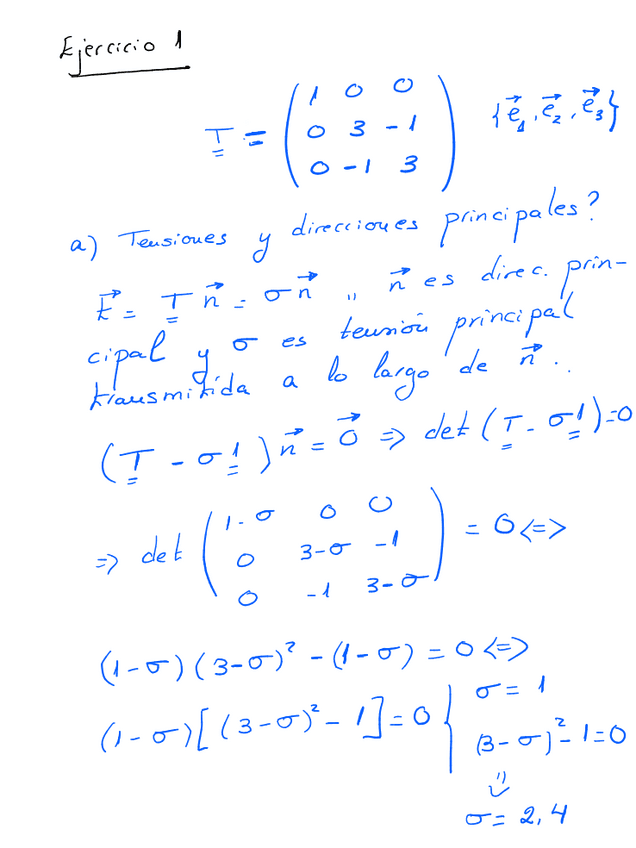 Ejercicio 1
T = ( 1 0 0
0 3 -1
0 -1 3 ) {e₁, e₂, e₃}
a) Tensiones y direcciones principales?
t⃗ = T n⃗ = σ n⃗ ,, n⃗ es direc. prin-
cipal y σ es tensión principal
transmitida a lo largo de n⃗ ..
(T - σ1) n⃗ = 0⃗ => det (T - σ1) = 0
=> det ( 1-σ 0 0
0 3-σ -1
0 -1 3-σ ) = 0 <=>
(1-σ)(3-σ)² - (1-σ) = 0 <=>
(1-σ)[(3-σ)² - 1] = 0 { σ = 1
(3-σ)² - 1 = 0
=>
σ = 2, 4